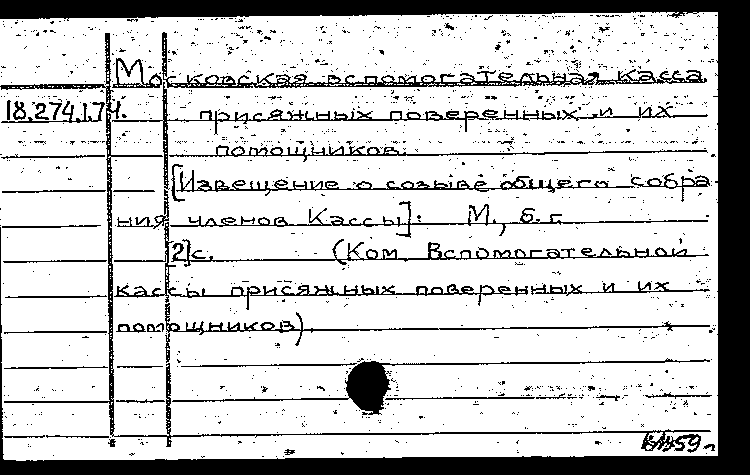 Московская вспомогательная касса
18.274.1.74. присяжных поверенных и их
помощников.
[Извещение о созыве общего собра-
ния членов Кассы]. М., б. г.
[2]с. (Ком. Вспомогательной
кассы присяжных поверенных и их
помощников).